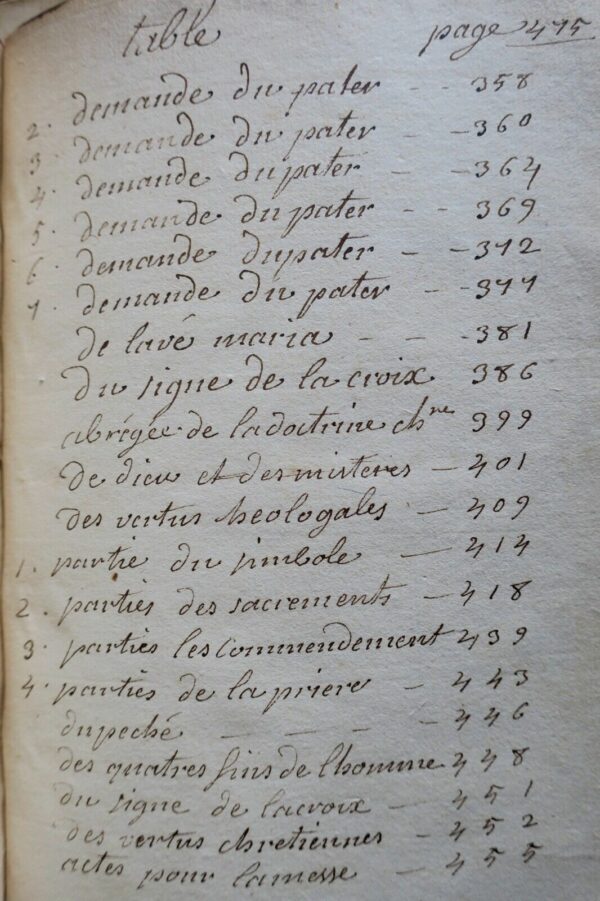 table page 475
2. demande du pater - - 358
3. demande du pater - - 360
4. demande du pater - - 364
5. demande du pater - - 369
6. demande du pater - - 372
7. demande du pater - - 377
de lavé maria - - - 381
du signe de la croix 386
abrégée de la doctrine chre 399
de dieu et des misteres - 401
des vertus theologales - 409
1. partie du simbole - 414
2. parties des sacrements - 418
3. parties les commendement 439
4. parties de la priere - 443
du peché - - - 446
des quatres fins de lhomme 448
du signe de la croix - 451
des vertus chretiennes - 452
actes pour la messe - 455